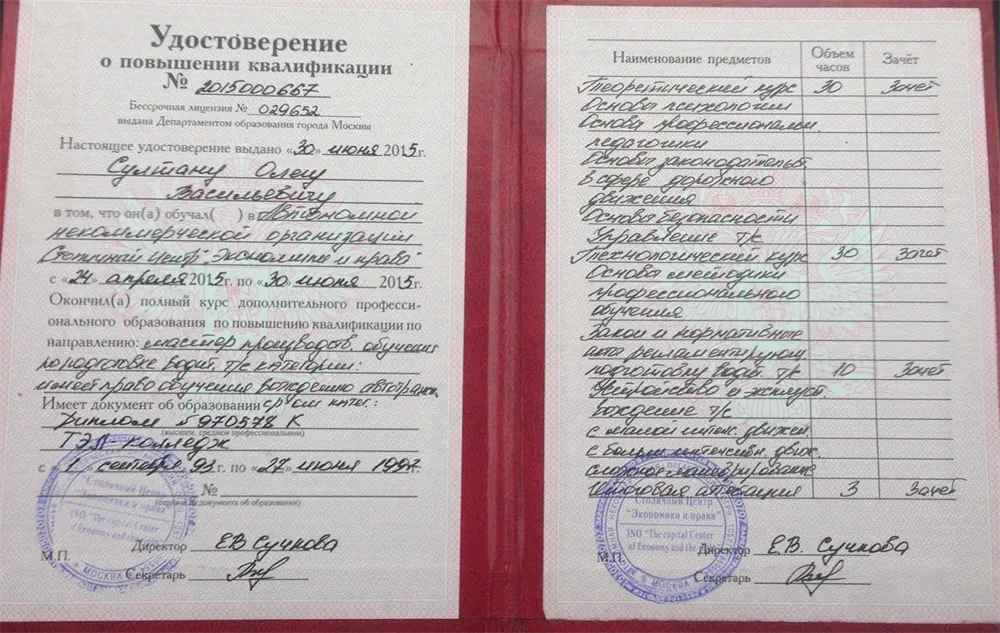 Удостоверение
о повышении квалификации
№ 2015000667
Бессрочная лицензия № 029652
выдана Департаментом образования города Москвы
Настоящее удостоверение выдано «30» июня 2015г.
Султану Олегу
Васильевичу
в том, что он(а) обучал( ) в Автономной
некоммерческой организации
Столичный Центр "Экономики и права"
с «24» апреля 2015г. по «30» июня 2015г.
Окончил(а) полный курс дополнительного професси-
онального образования по повышению квалификации по
направлению: мастер производств. обучения
по подготовке водит. т/с категории:
имеет право обучения вождению автотранс.
Имеет документ об образовании
Диплом 970578 К
(высшем, среднем профессиональном)
колледж
с «1» сентября 93г. по «27» июня 1997г.
№
(серия и № документа об образовании)
Столичный Центр
"Экономики и права"
INO "The capital Center
of Economy and the
МОСКВА
Директор Е.В Сучкова
М.П.
Секретарь
Наименование предметов Объем часов Зачёт
Теоретический курс 30 Зачет
Основы психологии
Основы профессиональн.
педагогики
Основы законодательст.
в сфере дорожного
движения
Основы безопасности
Управление т/с
Технологический курс 30 Зачет
Основы методики
профессионального
обучения
Закон и нормативные
акт регламентирующ.
подготовку водит. т/с 10 Зачет
Устройство и эксплуат.
Вождение т/с
с малой интен. движен.
с больш интенсивн. движ.
сложное маневрирование
Итоговая аттестация 3 Зачет
Столичный Центр
"Экономики и права"
INO "The capital Center
of Economy and the
МОСКВА
Директор Е.В. Сучкова
М.П.
Секретарь